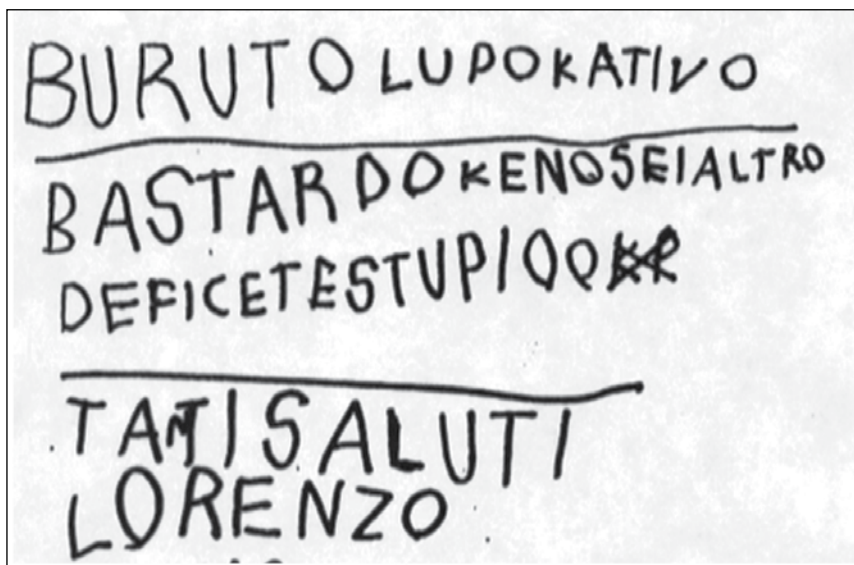 BURUTO LUPOKATIVO
BASTARDOKENOSEIALTRO
DEFICETESTUPIDO
TANTISALUTI
LORENZO